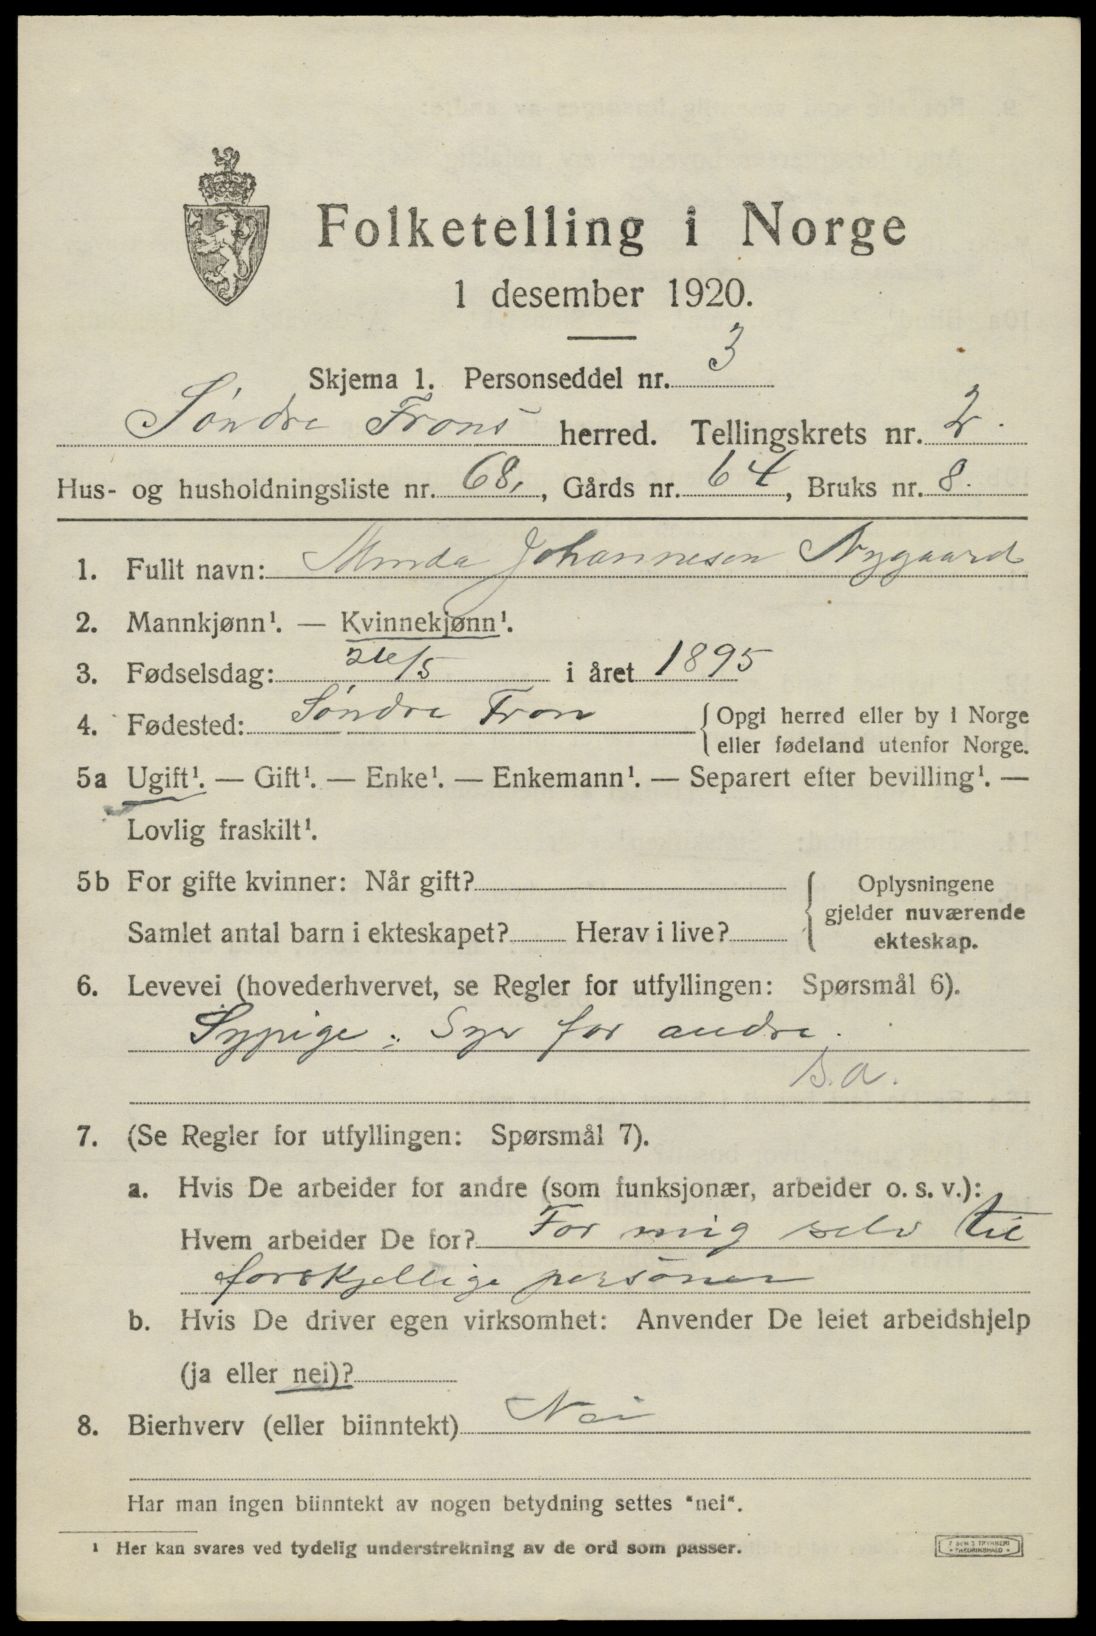 Folketelling i Norge
1 desember 1920.
Skjema 1. Personseddel nr. 3
Søndre Frons herred. Tellingskrets nr. 2.
Hus- og husholdningsliste nr. 68, , Gårds nr. 64, Bruks nr. 8.
1. Fullt navn: Minda Johannesen Nygaard
2. Mannkjønn¹. — Kvinnekjønn¹.
3. Fødselsdag: /5 i året 1895
4. Fødested: Søndre Fron { Opgi herred eller by i Norge
eller fødeland utenfor Norge.
5a Ugift¹. — Gift¹. — Enke¹. — Enkemann¹. — Separert efter bevilling¹. —
Lovlig fraskilt¹.
5b For gifte kvinner: Når gift?
Samlet antal barn i ekteskapet? Herav i live?
{ Oplysningene
gjelder nuværende
ekteskap.
6. Levevei (hovederhvervet, se Regler for utfyllingen: Spørsmål 6).
Sypige: Syr for andre.
s.a.
7. (Se Regler for utfyllingen: Spørsmål 7).
a. Hvis De arbeider for andre (som funksjonær, arbeider o. s. v.):
Hvem arbeider De for? For mig selv til
forskjellige personer
b. Hvis De driver egen virksomhet: Anvender De leiet arbeidshjelp
(ja eller nei)?
8. Bierhverv (eller biinntekt) Nei
Har man ingen biinntekt av nogen betydning settes "nei".
¹ Her kan svares ved tydelig understrekning av de ord som passer.